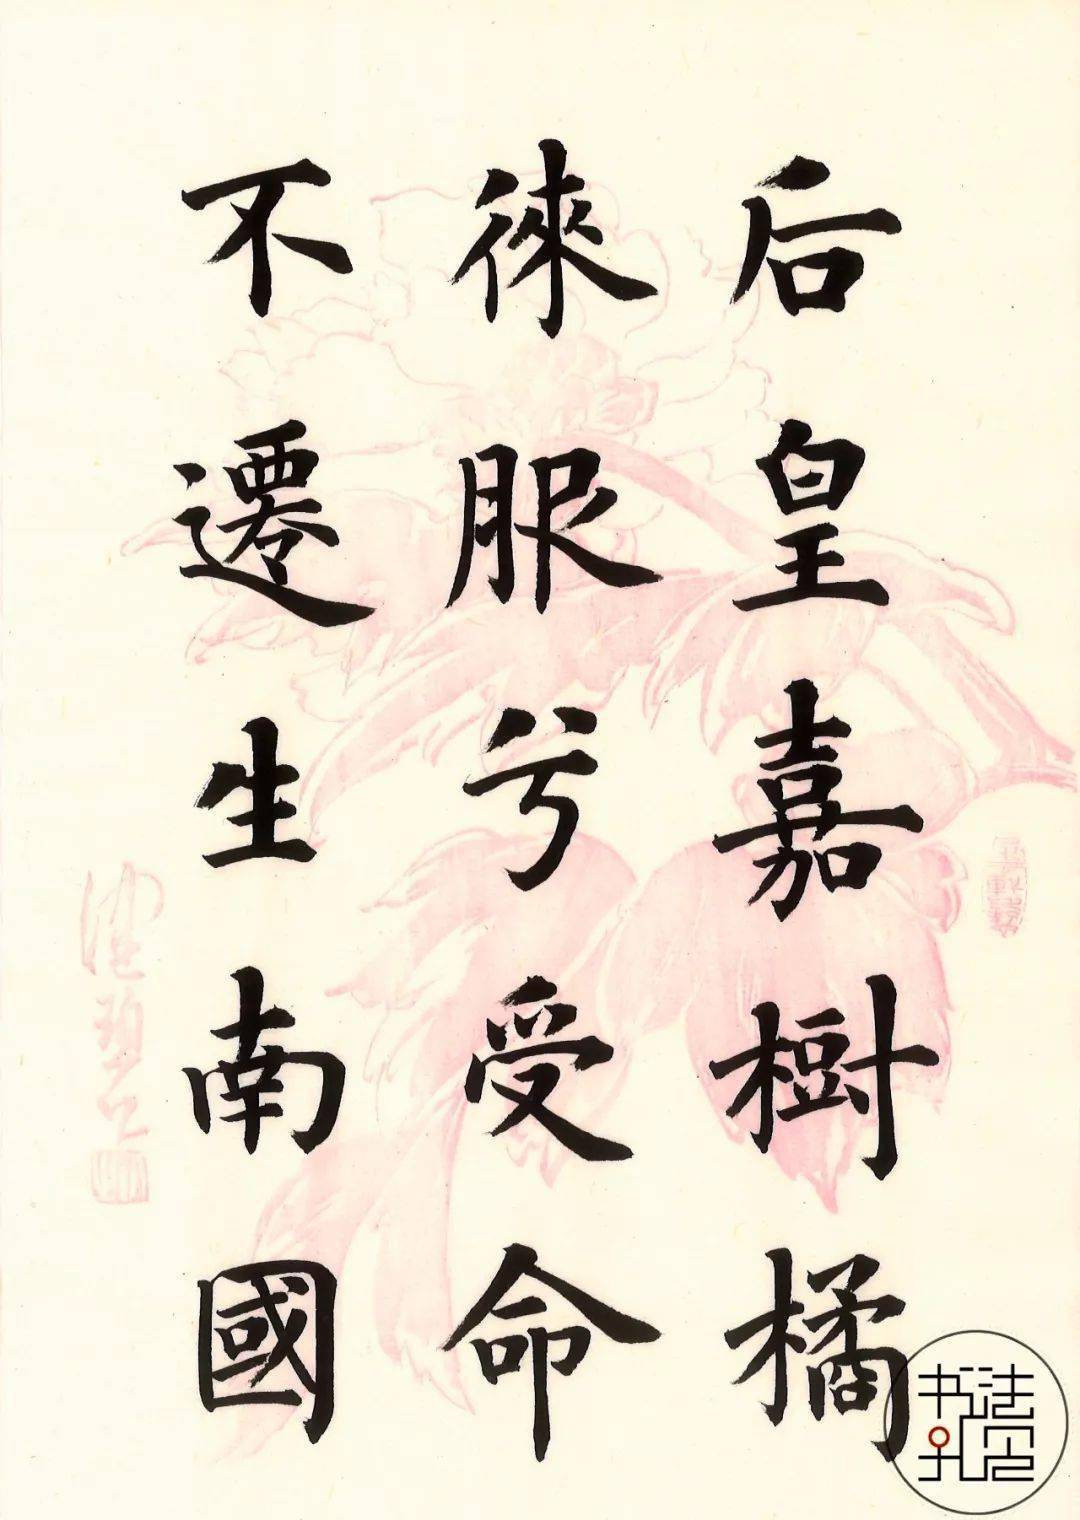 后皇嘉樹橘
徠服兮受命
不遷生南國
书法